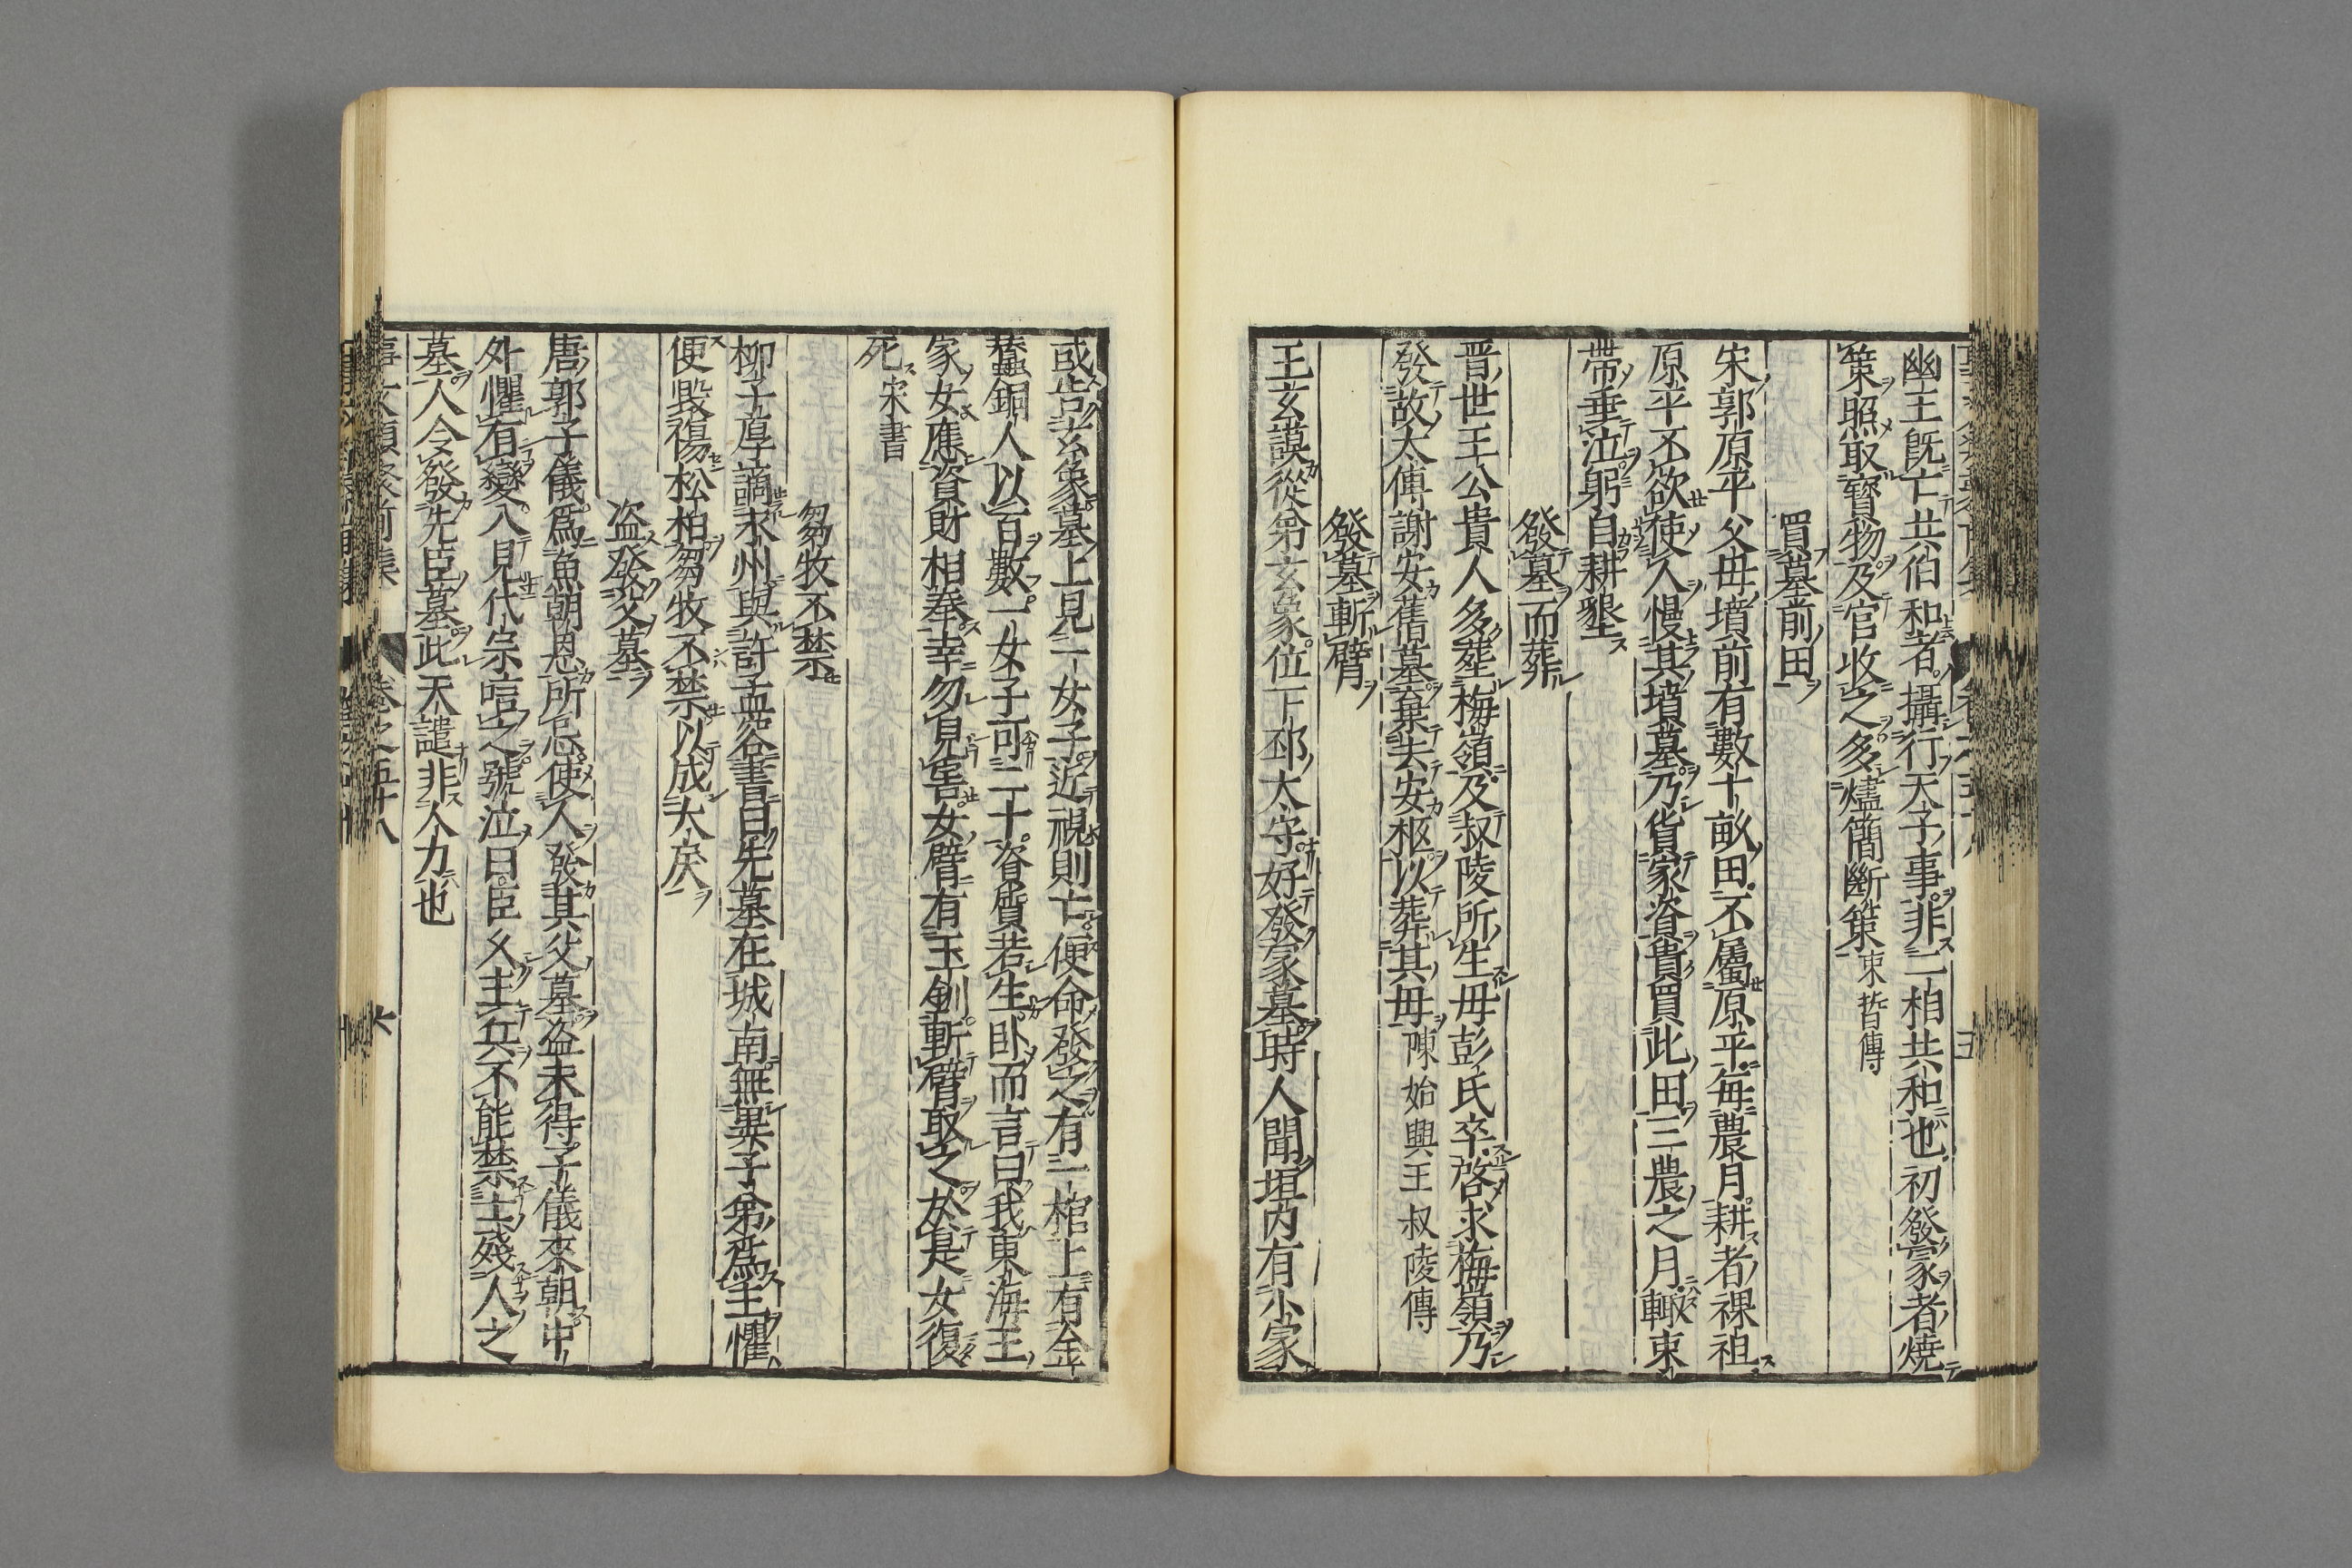 幽王既亡共伯和者攝行天子事非二相共和也初發冢者燒
策照取寶物及官收之多燼簡斷策束晳傳
買墓前田
宋郭原平父毋墳前有數十畝田不屬原平毎農月耕者裸袒
原平不欲使人慢其墳墓乃貨家資貴買此田三農之月輙束
帶垂泣躬自耕墾
發墓而葬
晋世王公貴人多葬梅嶺及叔陵所生毋彭氏卒啓求梅嶺乃
發故太傅謝安舊墓棄去安柩以葬其毋陳始興王叔陵傳
發墓斬臂
王玄謨從弟玄象位下邳大守好發冢墓時人間垣内有小冢
或告玄象墓上見一女子近視則亡便命發之有一棺上有金
蠶銅人以百數一女子可二十姿質若生卧而言曰我東海王
家女應資財相奉幸勿見害女臂有玉釧斬臂取之於是女復
死宋書
芻牧不禁
柳子厚謫永州與許孟容書曰先墓在城南無異子弟爲主懼
便毀傷松柏芻牧不禁以成大戾
盗發父墓
唐郭子儀爲魚朝恩所忌使人發其父墓盗未得子儀來朝中
外懼有變入見代宗唁之號泣曰臣乆主兵不能禁士殘人之
墓人今發先臣墓此天譴非人力也
事文類聚前集 卷之五十八 六